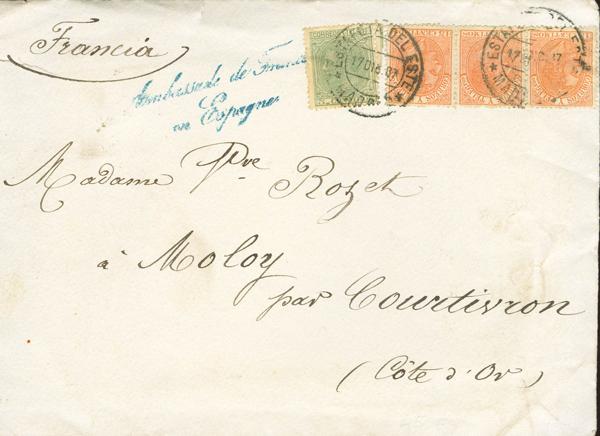 Francia
Ambassade de France
en Espagne
ESTAFETA DEL ESTE
17 DIC 87
MADRID
Madame Vve Rozet
à Moloy
par Courtivron
(Côte d'Or)